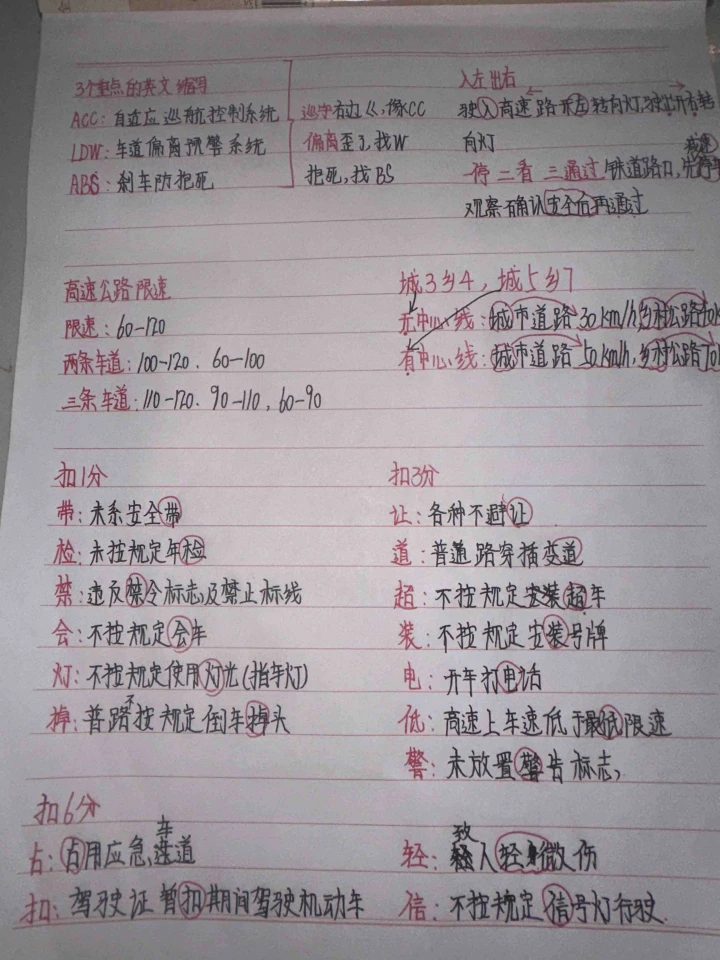 3个重点的英文缩写
ACC: 自适应巡航控制系统
LDW: 车道偏离预警系统
ABS: 刹车防抱死
巡字右边巛,像CC
偏离歪了,找W
抱死,找BS
入左出右
驶入高速路开左转向灯,驶出开右转
向灯
一停二看三通过,铁道路口,先
减速
观察确认安全后再通过
高速公路限速
限速: 60-120
两条车道: 100-120. 60-100
三条车道: 110-120. 90-110, 60-90
城3乡4, 城5乡7
无中心线: 城市道路30km/h,乡村公路40k
有中心线: 城市道路50km/h,乡村公路70k
扣1分
带: 未系安全带
检: 未按规定年检
禁: 违反禁令标志及禁止标线
会: 不按规定会车
灯: 不按规定使用灯光(指车灯)
掉: 普路不按规定倒车掉头
扣3分
让: 各种不避让
道: 普通路穿插变道
超: 不按规定超车
装: 不按规定安装号牌
电: 开车打电话
低: 高速上车速低于最低限速
警: 未放置警告标志,
扣6分
占: 占用应急车道
扣: 驾驶证暂扣期间驾驶机动车
轻: 致人轻微伤
信: 不按规定信号灯行驶.